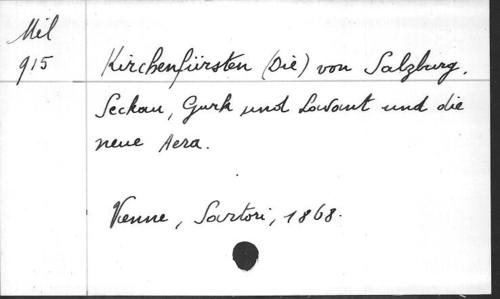 Mil
915
Kirchenfürsten (Die) von Salzburg,
Seckau, Gurk und Lavant und die
neue Aera.
Vienne, Sartori, 1868.